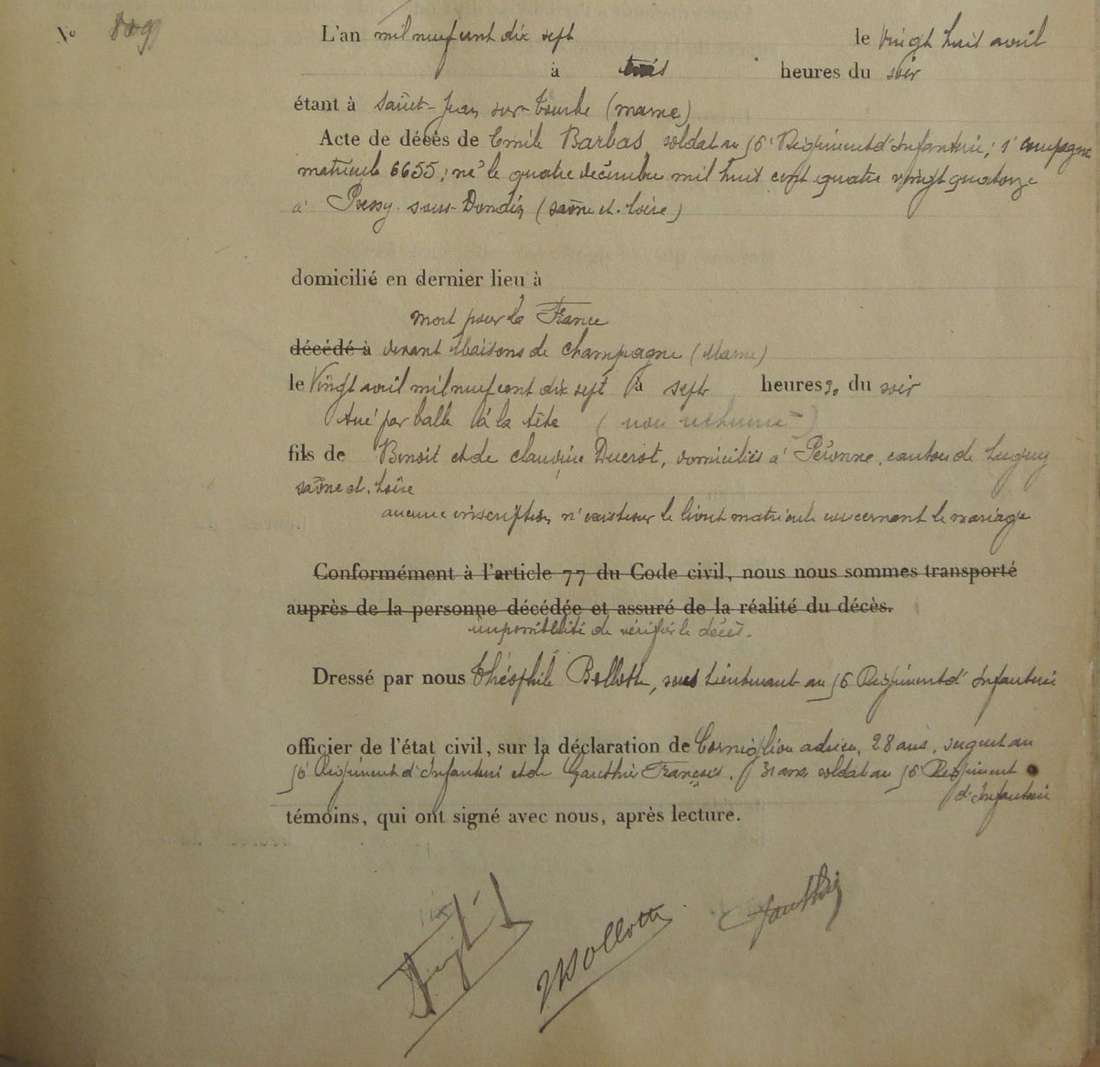 N°
L'an mil neuf cent dix sept le vingt huit avril
à trois heures du soir
étant à Saint-Jean sur-Tourbe (marne)
Acte de décès de Emile Barbas soldat au 56e Régiment d'Infanterie, compagnie
matricule 6655; né le quatre décembre mil huit cent quatre vingt quatorze
à Pressy sous-Dondin (saône et-Loire)
domicilié en dernier lieu à
mort pour la France
décédé à devant Maisons de champagne (Marne)
le Vingt avril mil neuf cent dix sept à sept heures 30 du soir
tué par balle à la tête (non
fils de Benoit et de claudine Ducrot, domiciliés à Péronne, canton de Lugny
saône et-Loire
aucune inscription n'existe sur le livret matricule concernant le mariage
Conformément à l'article 77 du Code civil, nous nous sommes transporté
auprès de la personne décédée et assuré de la réalité du décès.
impossibilité de vérifier le décès.
Dressé par nous Théophile sous Lieutenant au 56e Régiment d'Infanterie
officier de l'état civil, sur la déclaration de adrien, 28 ans, sergent au
56e Régiment d'Infanterie et de Gauthier François, 31 ans soldat au 56e Régiment
d'Infanterie
témoins, qui ont signé avec nous, après lecture.
Gauthier